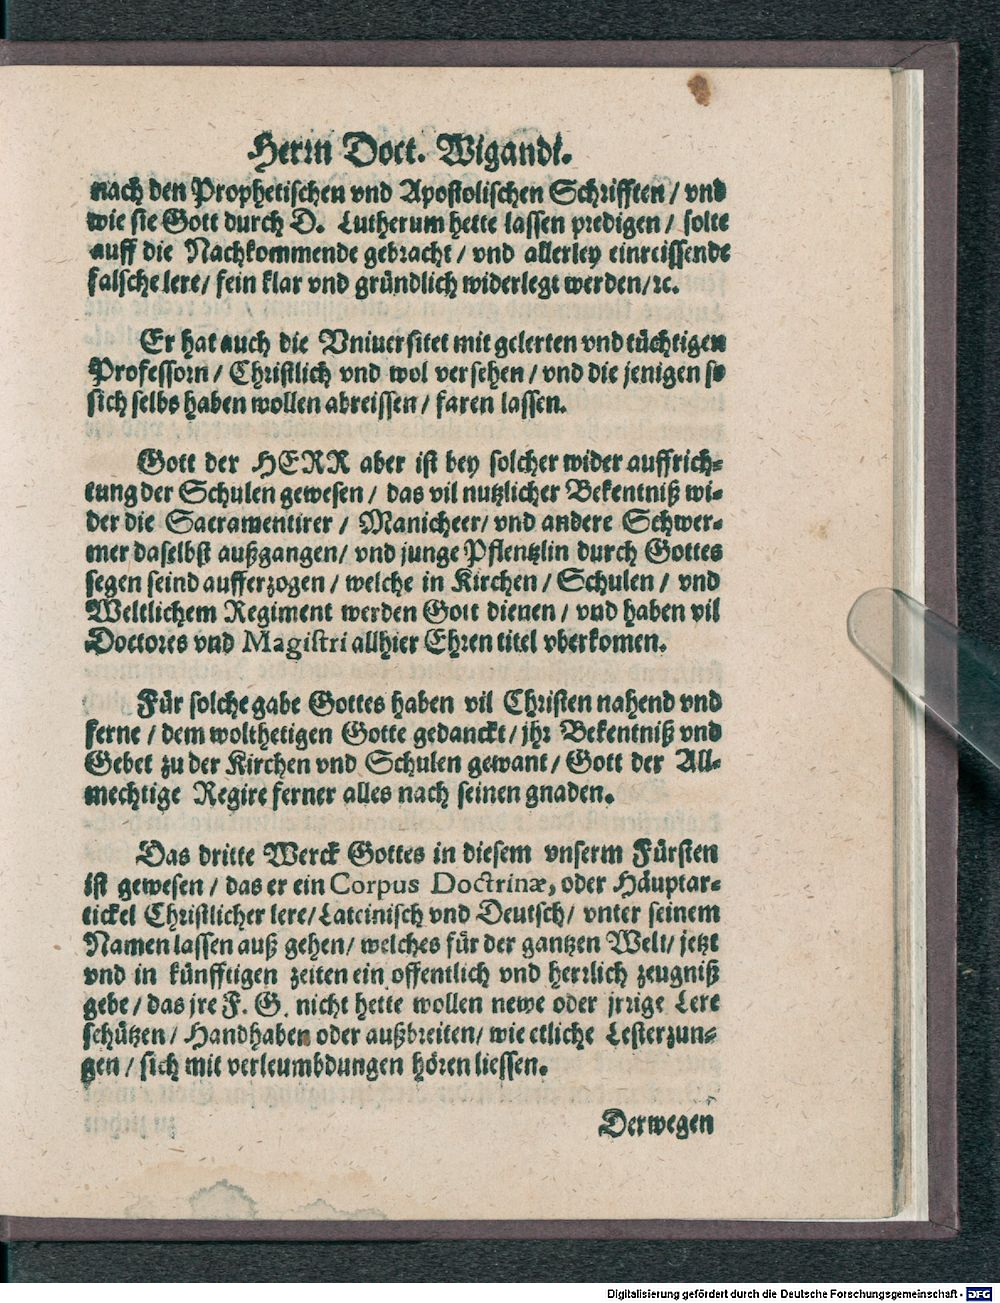 Herrn Doct. Wigandi.
nach den Prophetischen vnd Apostolischen Schrifften / vnd
wie sie Gott durch D. Lutherum hette lassen predigen / solte
auff die Nachkommende gebracht / vnd allerley einreissende
falsche lere / fein klar vnd gründlich widerlegt werden / ꝛc.
Er hat auch die Vniuersitet mit gelerten vnd tüchtigen
Professorn / Christlich vnd wol versehen / vnd die jenigen so
sich selbs haben wollen abreissen / faren lassen.
Gott der HERR aber ist bey solcher wider auffrich-
tung der Schulen gewesen / das vil nutzlicher Bekentniß wi-
der die Sacramentirer / Manicheer / vnd andere Schwer-
mer daselbst außgangen / vnd junge Pflentzlin durch Gottes
segen seind aufferzogen / welche in Kirchen / Schulen / vnd
Weltlichem Regiment werden Gott dienen / vnd haben vil
Doctores vnd Magistri allhier Ehren titel vberkomen.
Für solche gabe Gottes haben vil Christen nahend vnd
ferne / dem wolthetigen Gotte gedanckt / jhr Bekentniß vnd
Gebet zu der Kirchen vnd Schulen gewant / Gott der All-
mechtige Regire ferner alles nach seinen gnaden.
Das dritte Werck Gottes in diesem vnserm Fürsten
ist gewesen / das er ein Corpus Doctrinæ, oder Häuptar-
tickel Christlicher lere / Lateinisch vnd Deutsch / vnter seinem
Namen lassen auß gehen / welches für der gantzen Welt / jetzt
vnd in künfftigen zeiten ein offentlich vnd herrlich zeugniß
gebe / das jre F. G. nicht hette wollen newe oder jrrige Lere
schützen / Handhaben oder außbreiten / wie etliche Lesterzun-
gen / sich mit verleumbdungen hören liessen.
Derwegen
Digitalisierung gefördert durch die Deutsche Forschungsgemeinschaft - DFG